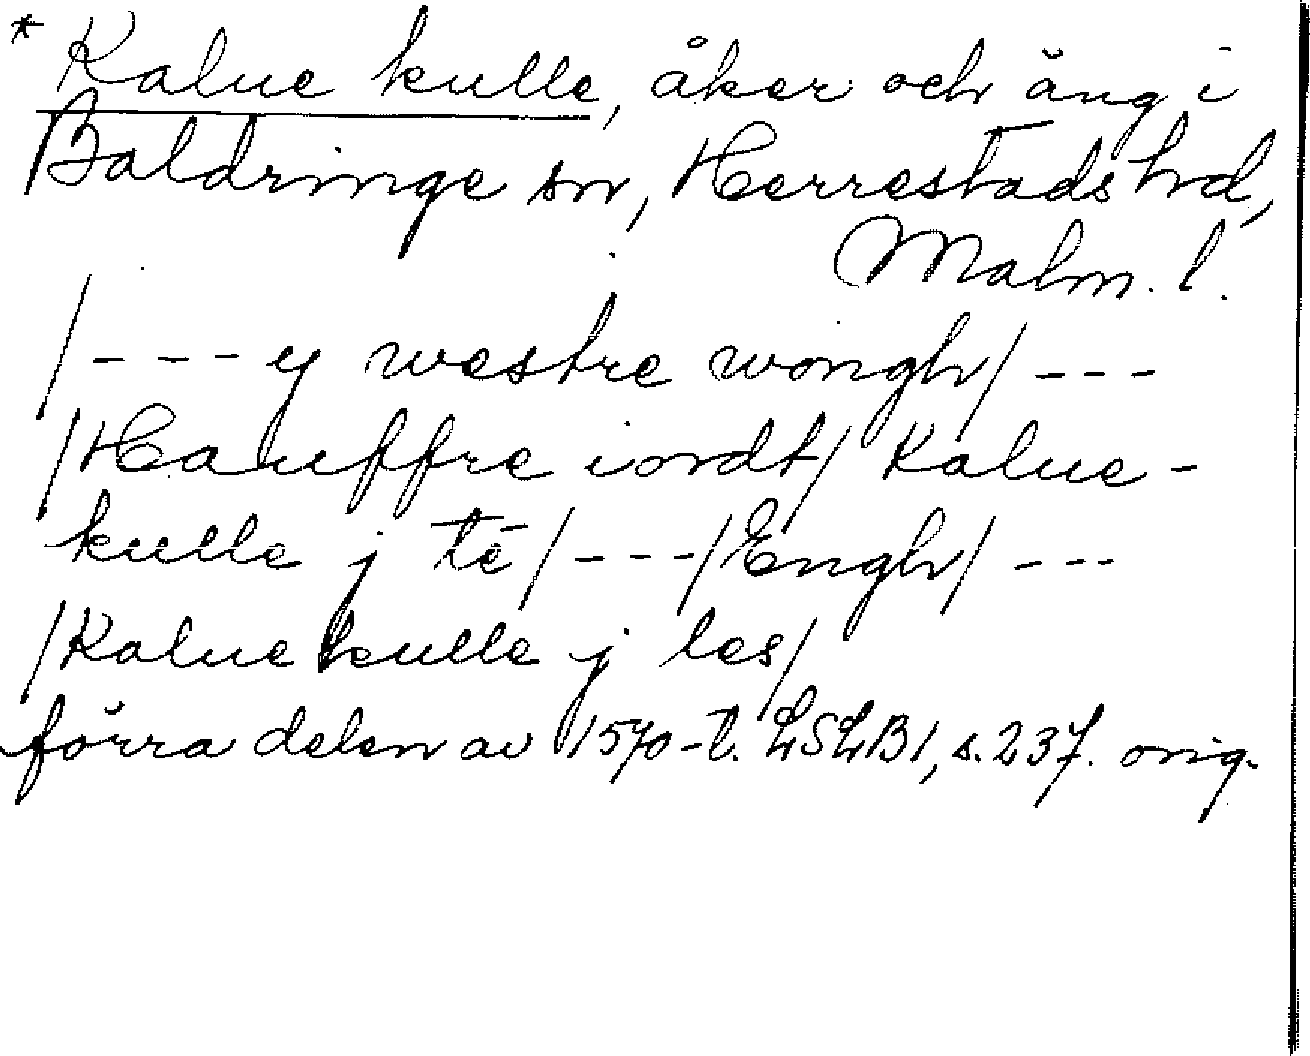 * Kalue kulle, åker och äng i
Baldringe sn, Herrestads hd,
Malm. l.
/--- y westre wongh/ ---
/Hauffre iordt/ Kalue-
kulle j tē/---/Engh/ ---
/Kalue kulle j les/
förra delen av 1570-t. LSLB1, s. 237. orig.